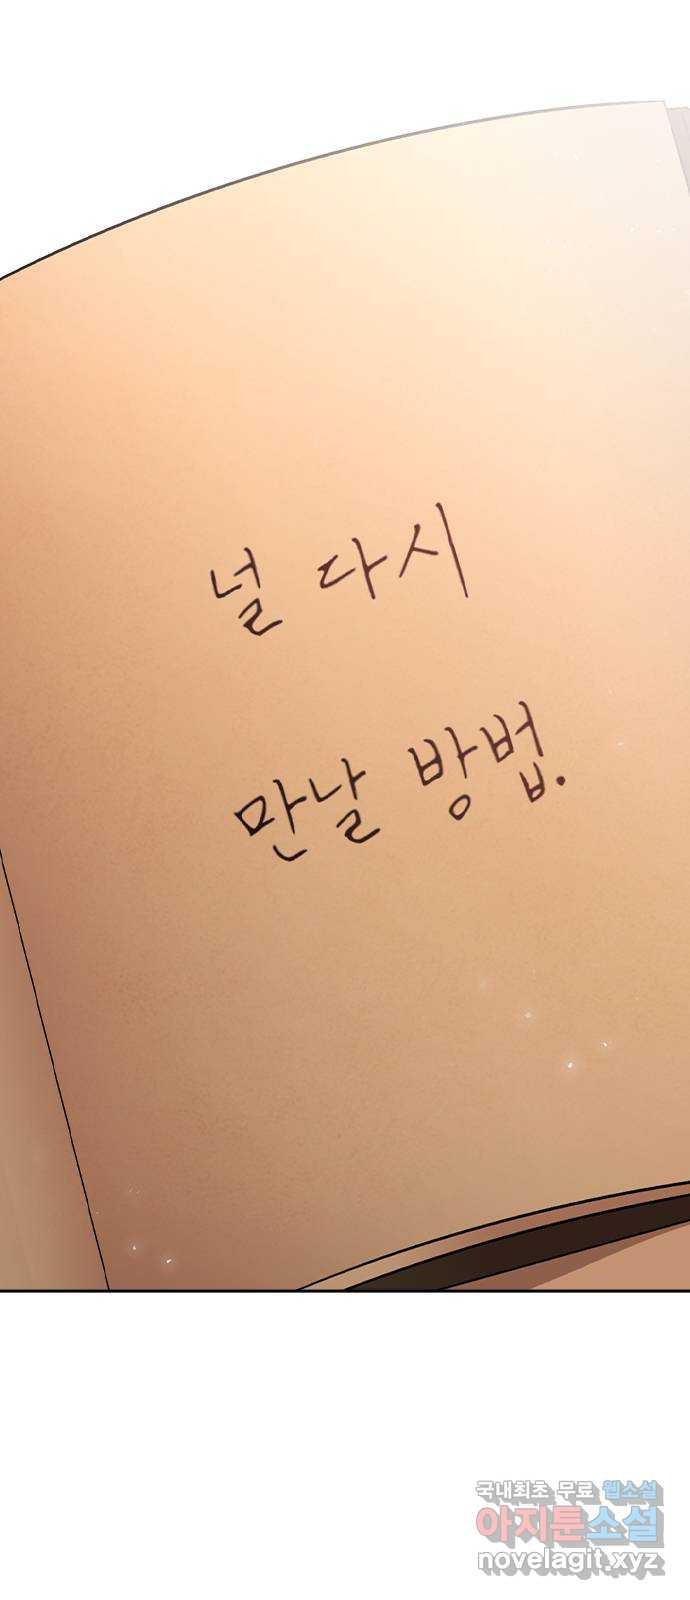 널 다시
만날 방법.
국내최초 무료 웹소설
아지툰소설
novelagit.xyz